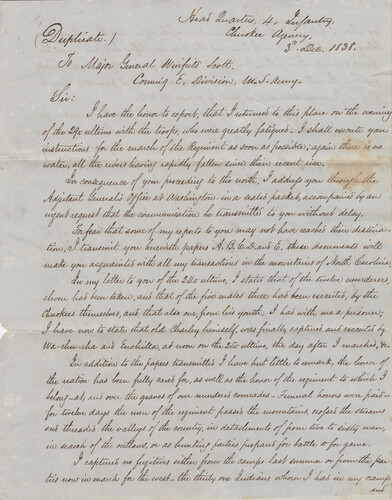 Head Quarters, 4. Infantry,
Cherokee Agency,
3d. Dec. 1838.
(Duplicate.)
To Major General Winfield Scott.
Comdng E. Division, U.S. Army.
Sir:
I have the honor to report, that I returned to this place on the evening
of the ultimo with the troops, who were greatly fatigued. I shall execute your
instructions for the march of the Regiment as soon as possible; again there is no
water, all the rivers having rapidly fallen since their recent rise.
In consequence of your proceeding to the north, I address you through the
Adjutant General's Office at Washington in a sealed packet, accompanied by an
urgent request that the communication be transmitted to you without delay.
So fear that some of my reports to you may not have reached their destina-
tion, I transmit you herewith papers A. B. C. D. and E. These documents will
make you acquainted with all my transactions in the mountains of North Carolina.
In my letter to you of the 24th ultimo, I stated that of the twelve murderers,
eleven had been taken, and that of the five males three had been executed, by the
Cherokees themselves, and that also one, from his youth, I had with me a prisoner;
I have now to state that old Charley himself was finally captured and executed by
Wa-chu-cha and Euchella, at noon on the 25th ultimo, the day after I marched, &c.
In addition to the papers transmitted I have but little to remark, the honor of
the nation has been fully cared for, as well as the honor of the regiment to which I
belong, and over the graves of our murdered comrades - Funeral honors were paid -
for twelve days the men of the regiment passed the mountains, crossed the streams
and threaded the valleys of the country, in detachments of from two to sixty men,
in search of the outlaws, or as hunting parties prepared for battle or for game.
I captured no fugitives either from the camps last summer or from the par-
ties now in march for the west - the thirty one Indians whom I had in my camp
and